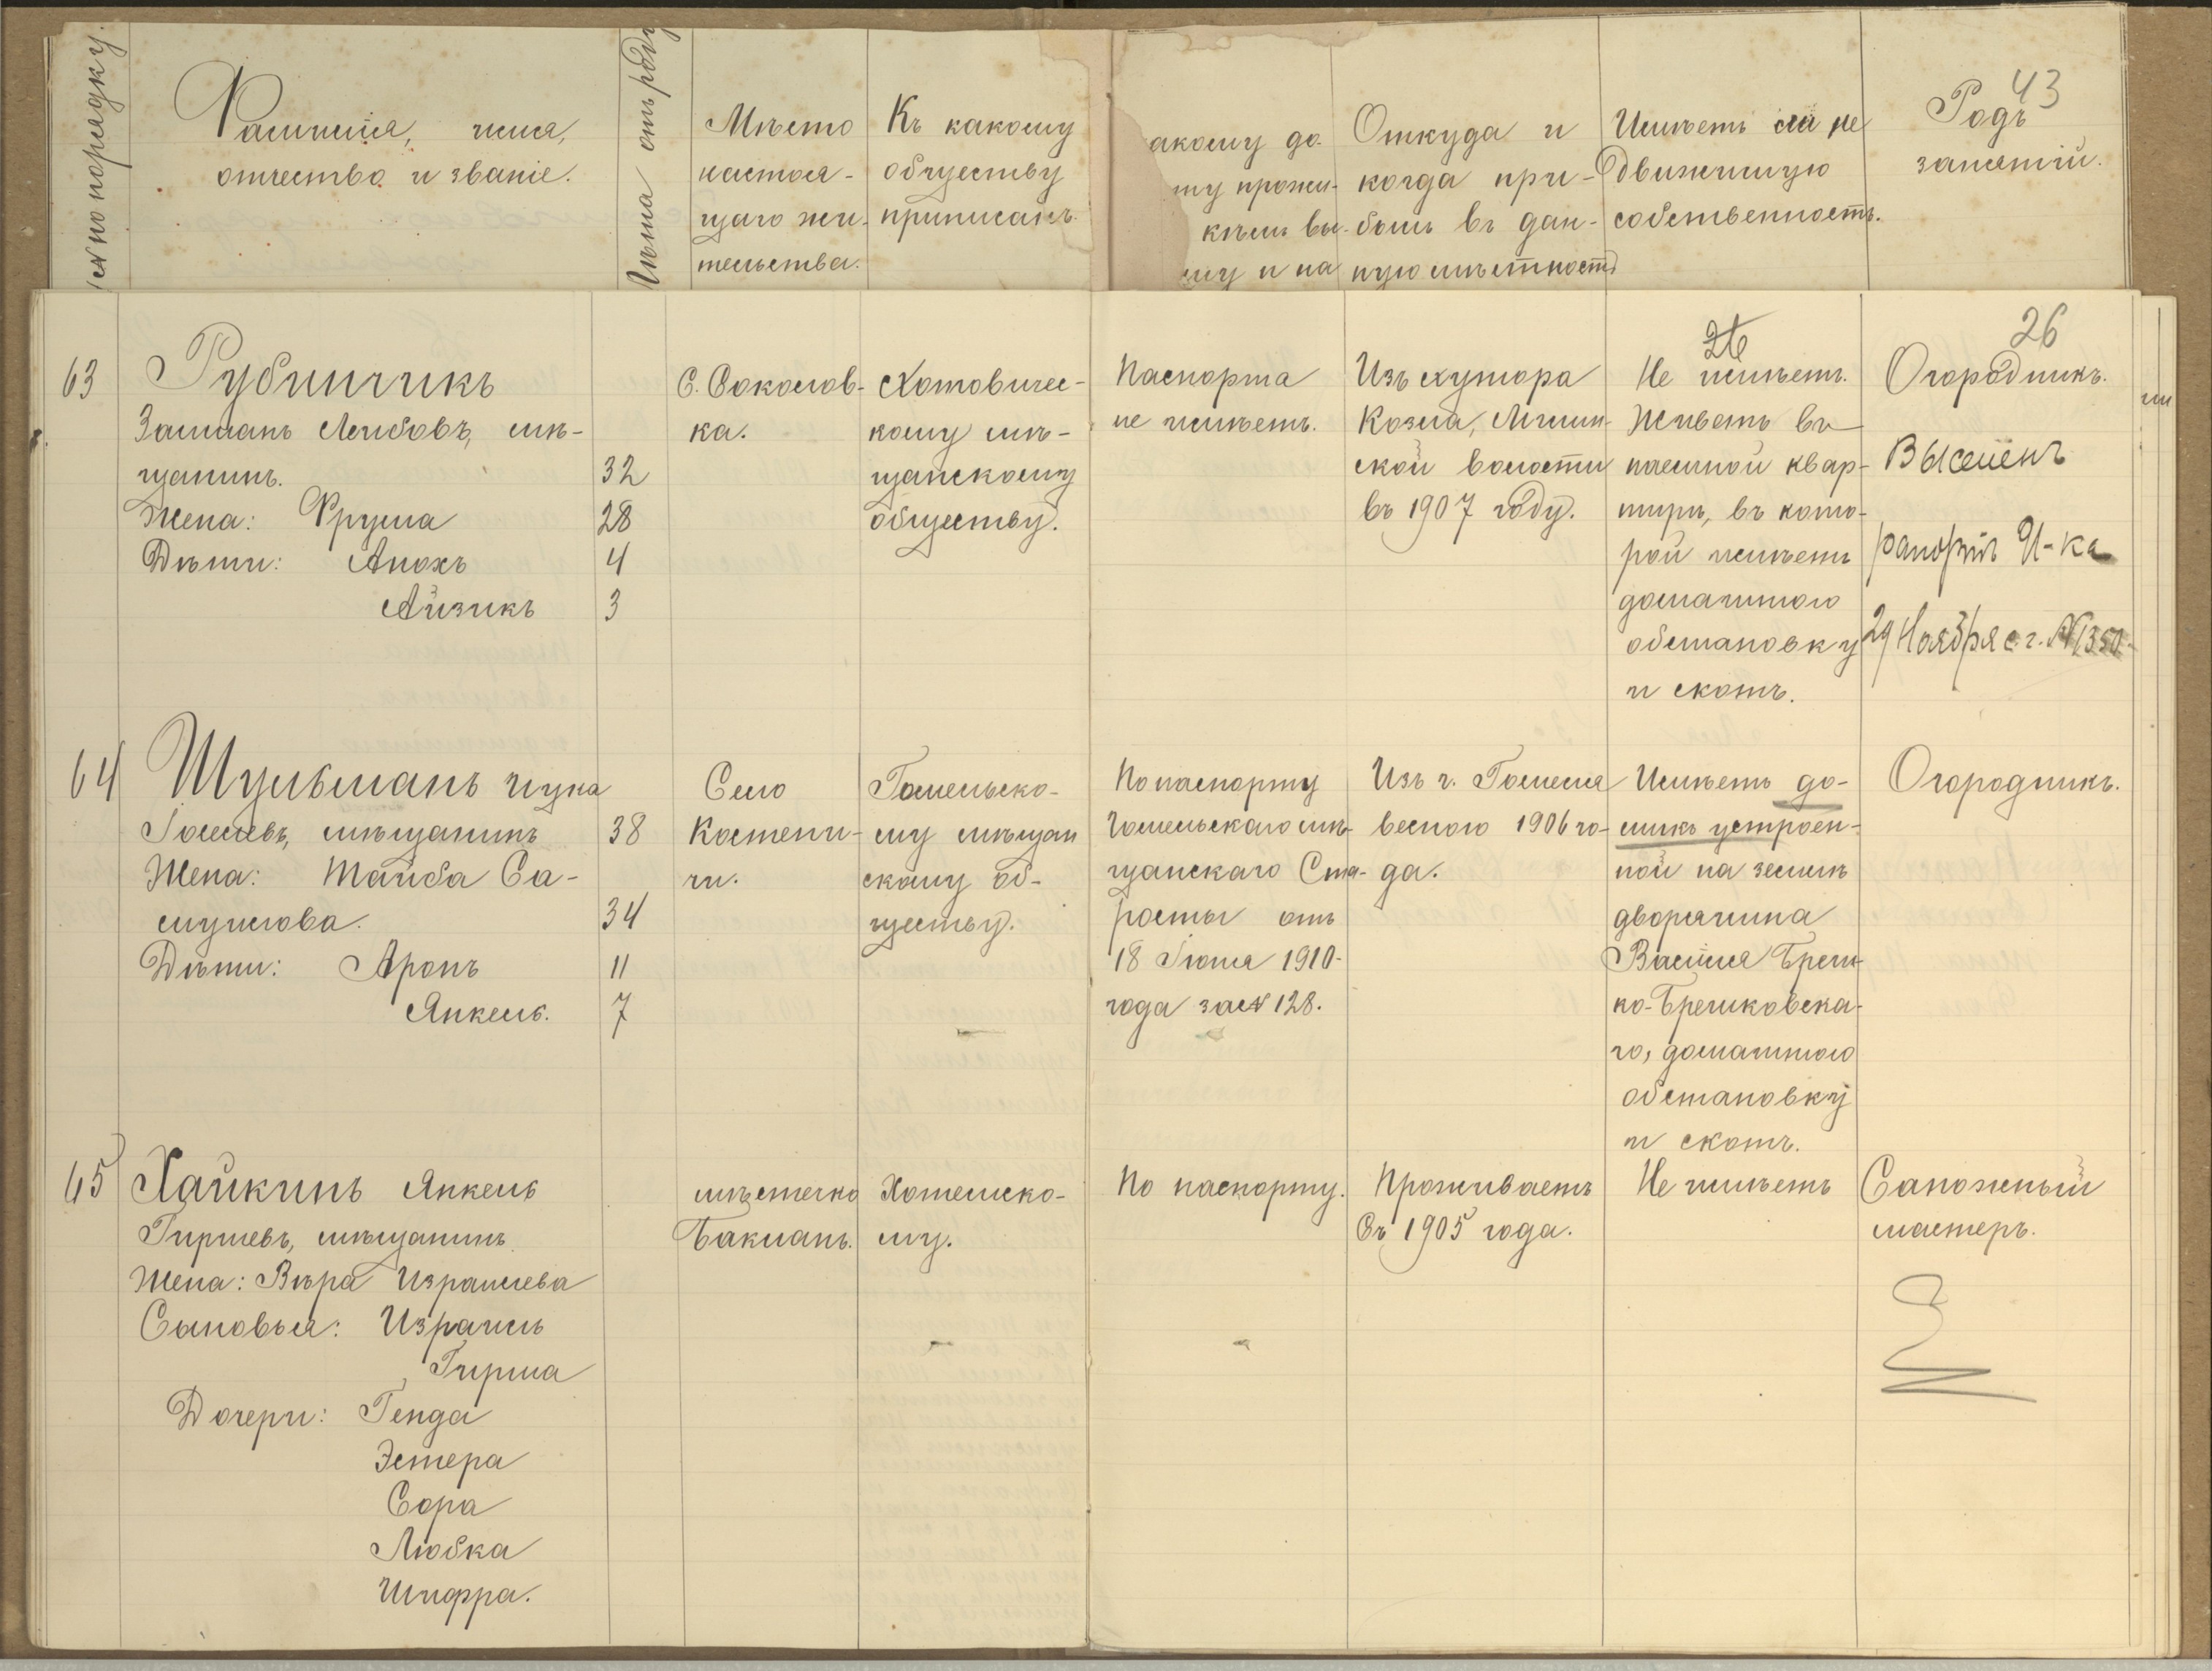 № по порядку.
Фамилія, имя,
отчество и званіе.
Лѣта отъ роду
Мѣсто
настоя-
щаго жи-
тельства.
Къ какому
обществу
приписанъ.
акому до-
ту прожи-
кѣмъ вы-
му и на
Откуда и
когда при-
былъ въ дан-
ную мѣстность
Имѣетъ ли не
движимую
собственность.
Родъ
занятій.
43
26
26
63
Рубинчикъ
Залманъ Лейбовъ, мѣ-
щанинъ. 32
Жена: Фрума 28
Дѣти: Анохъ 4
Айзикъ 3
С. Соколов-
ка.
Хотовичес-
кому мѣ-
щанскому
обществу.
Паспорта
не имѣетъ.
Изъ хутора
Козла,
ской волости
въ 1907 году.
Не имѣетъ.
Живетъ въ
наемной квар-
тирѣ, въ кото-
рой имѣетъ
домашнюю
обстановку
и скотъ.
Огородникъ.
Выселенъ
рапортъ У-ка
29 Ноября с. г. №1350
64
Шульманъ
Гошевъ, мѣщанинъ 38
Жена: Тайба Са-
муилова. 34
Дѣти: Аронъ 11
Янкель. 7
Село
Костени-
чи.
Гомельско-
му мѣщан
скому об-
ществу.
По паспорту
Гомельскаго мѣ-
щанскаго Ста-
росты отъ
18 Іюня 1910-
года за № 128.
Изъ г. Гомеля
весною 1906 го-
да.
Имѣетъ до-
микъ устроен-
ной на землѣ
дворянина
Василія Бреш-
ко-Брешковска-
го, домашнюю
обстановку
и скотъ.
Огородникъ.
65
Хайкинъ Янкель
Гиршевъ, мѣщанинъ
Жена: Вѣра Израилева
Сыновья: Израиль
Гирша
Дочери: Генда
Эстера
Сора
Любка
Шифра.
мѣстечко
Баклань.
му.
По паспорту.
Проживаетъ
съ 1905 года.
Не имѣетъ
Сапожный
мастеръ.